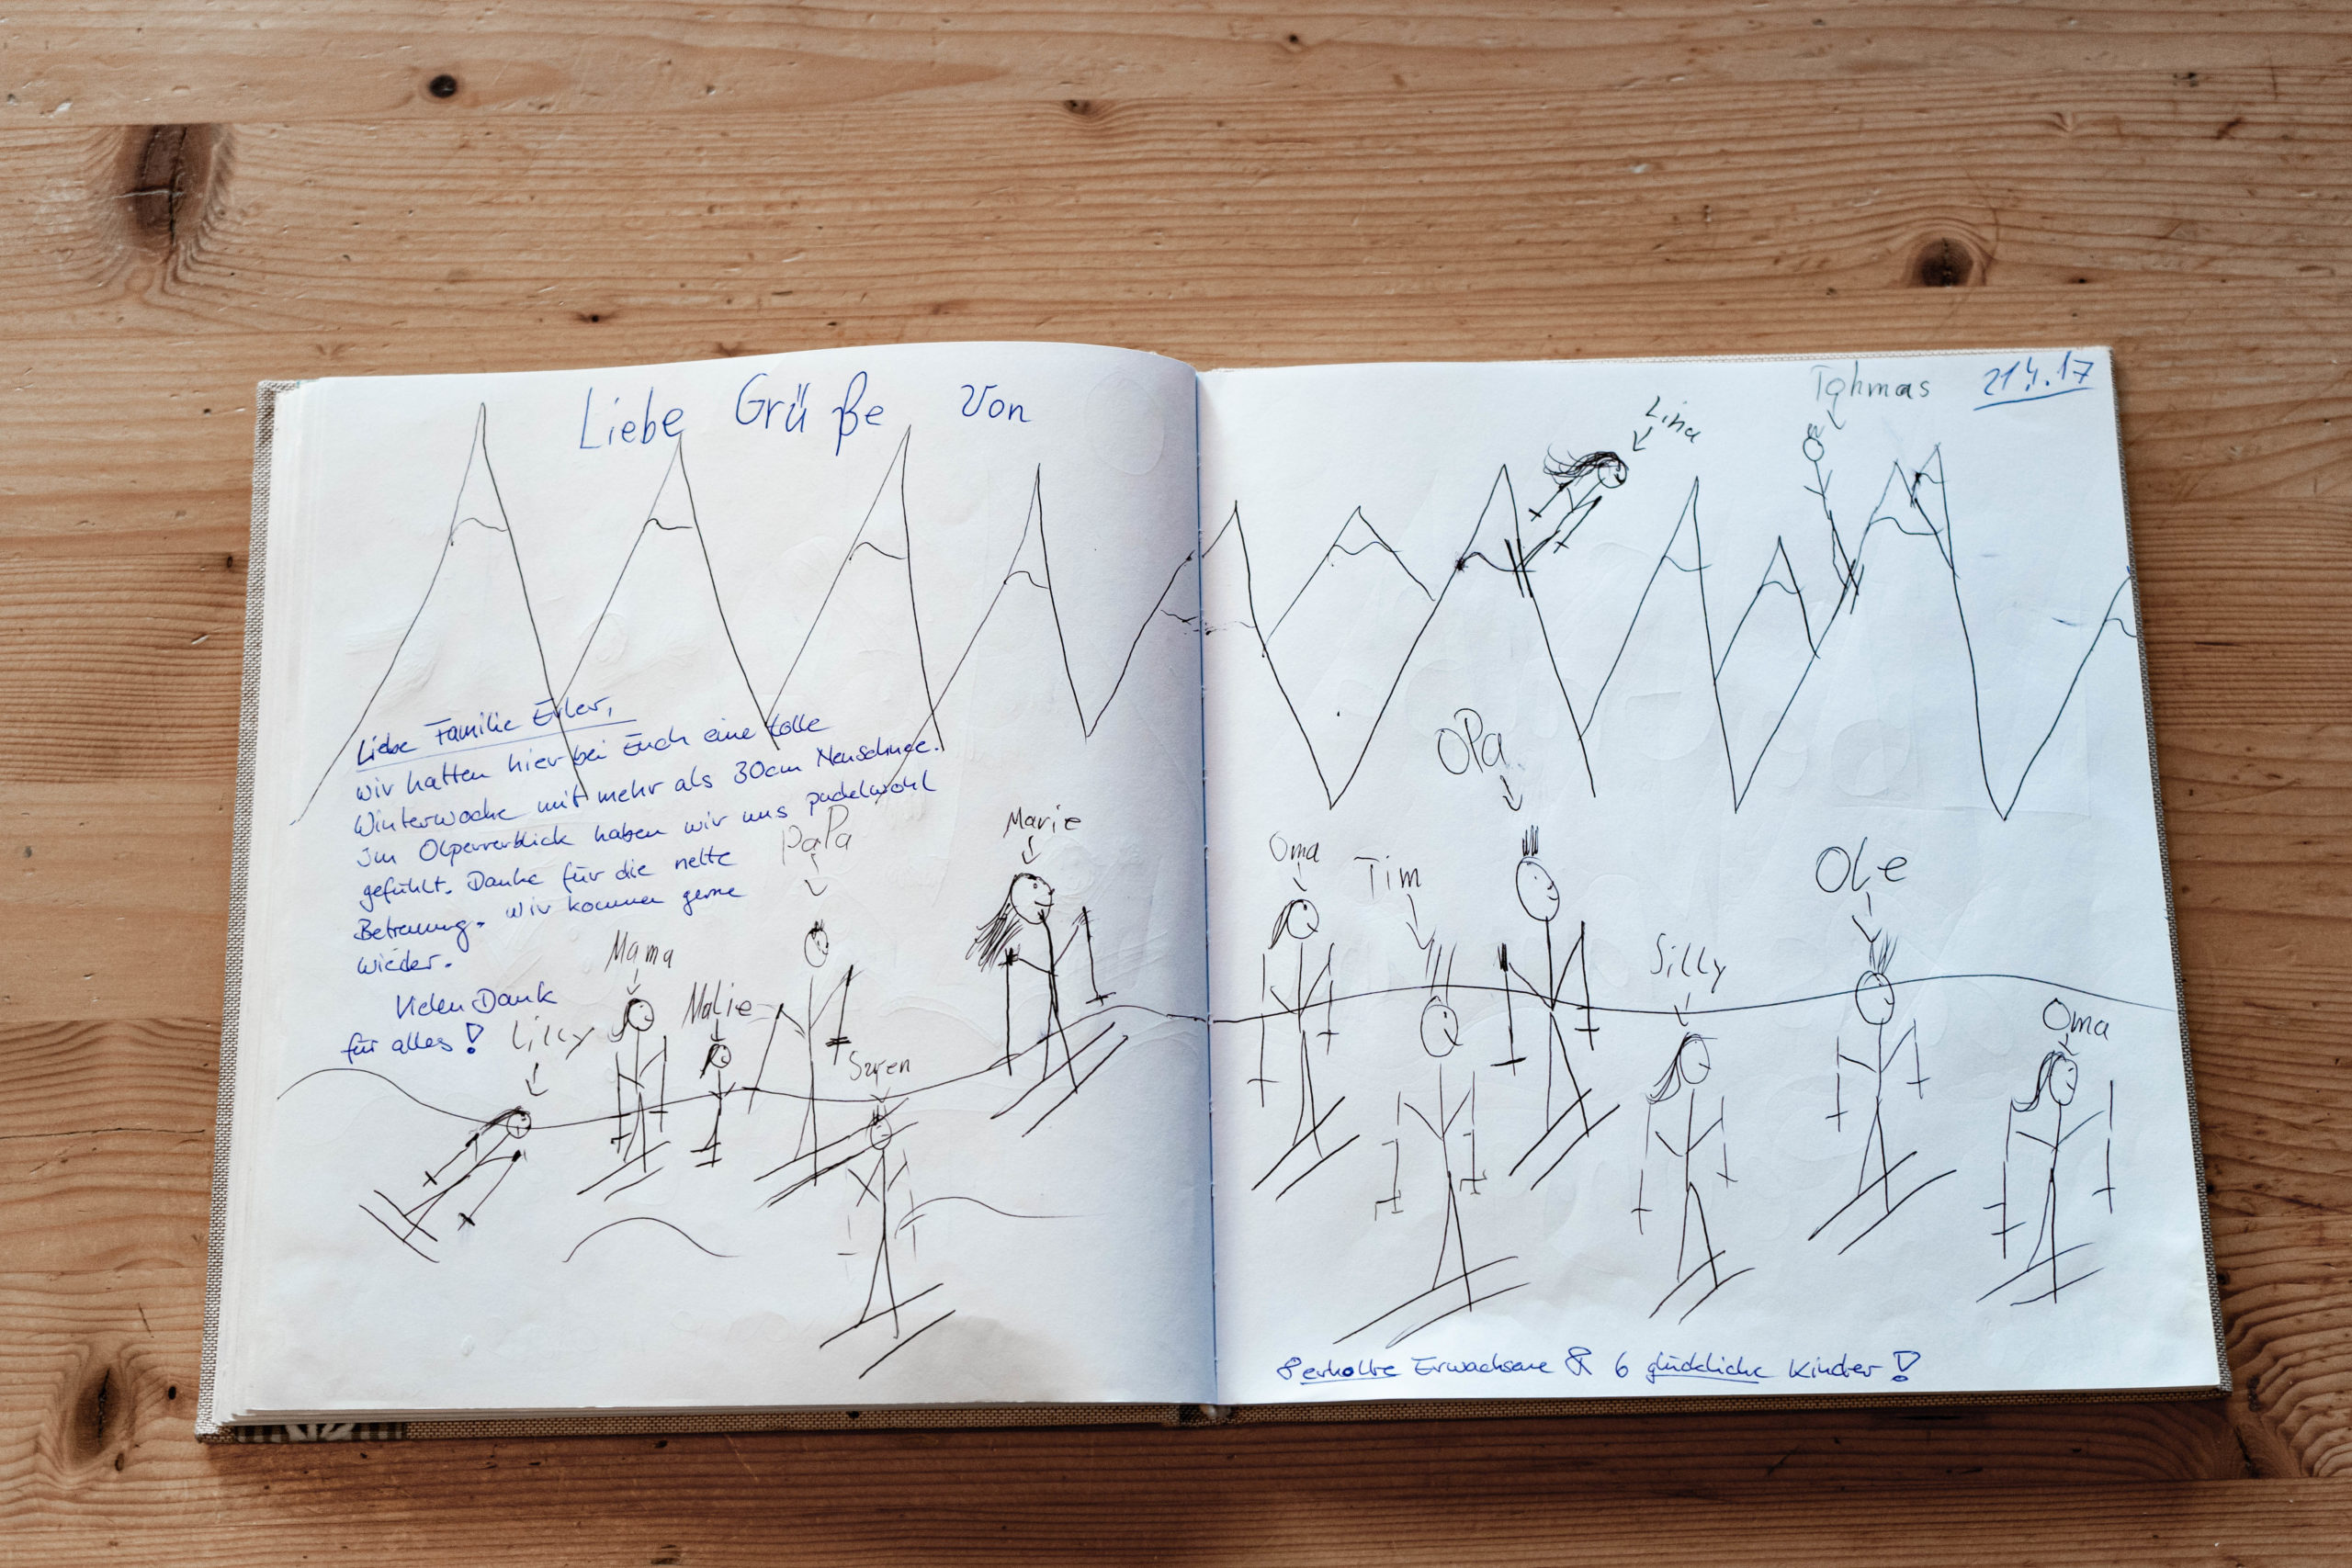 Liebe Grüße von
Liebe Familie Erler,
wir hatten hier bei Euch eine tolle
Winterwoche mit mehr als 30cm Neuschnee.
Im Olpererblick haben wir uns pudelwohl
gefühlt. Danke für die nette
Betreuung. Wir kommen gerne
wieder.
Vielen Dank
für alles!
Lilly
Mama
Malie
PaPa
Suren
Marie
21.4.17
Tahmas
Lina
OPa
Oma
Tim
Silly
Ole
Oma
8 erholte Erwachsene & 6 glückliche Kinder!